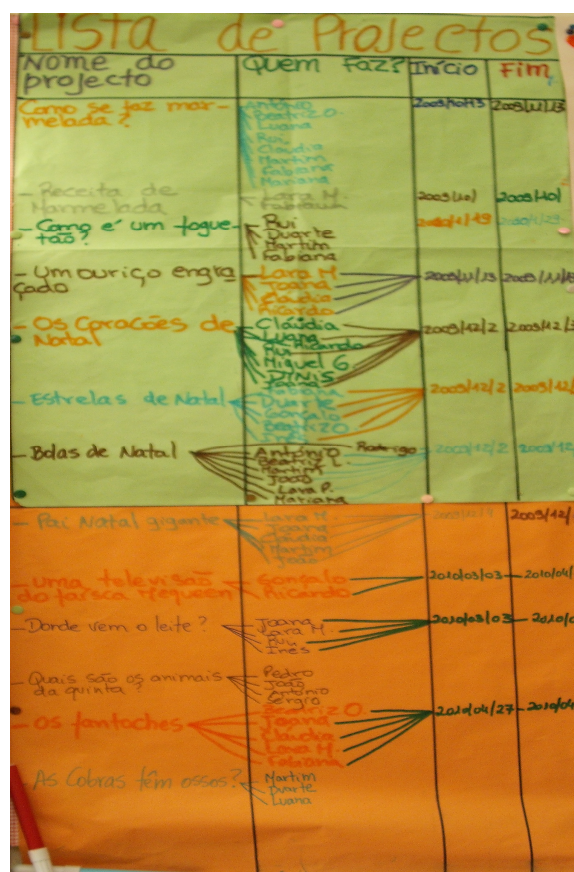 Lista de Projectos
Nome do projecto
Quem faz?
Início
Fim
Como se faz mar-
melada?
António
Beatriz O.
Luana
Rui
Cláudia
Martim
Fabiana
Mariana
2009/11/13
- Receita de
Marmelada
Lara M.
Fabiana
2009/10/
2009/10/
- Como é um fogue-
tão?
Rui
Duarte
Martim
Fabiana
- Um ouriço engra
çado
Lara M.
Joana
Cláudia
Ricardo
2009/11/13
2009/11/
- Os Corações de
Natal
Cláudia
Luana
Rui
Ricardo
Miguel G.
Dinis
2009/12/2
2009/12/
- Estrelas de Natal
Fabiana
Duarte
Gonçalo
Beatriz O
Inês
2009/12/2
2009/12/
- Bolas de Natal
António
Rodrigo
Beatriz L.
Martim
João
Lara P.
Mariana
2009/12/2
2009/12
- Pai Natal gigante
Lara M.
Joana
Cláudia
Martim
João
2009/12/
- Uma televisão
do faísca Mequeen
Gonçalo
Ricardo
2010/03/03
2010/04/
- Donde vem o leite?
Joana
Lara M.
Rui
Inês
2010/03/03
2010/0
- Quais são os animais
da quinta?
Pedro
João
António
Sérgio
- Os fantoches
Beatriz O.
Joana
Cláudia
Lara M.
Fabiana
2010/04/27
2010/04
- As Cobras têm ossos?
Martim
Duarte
Luana